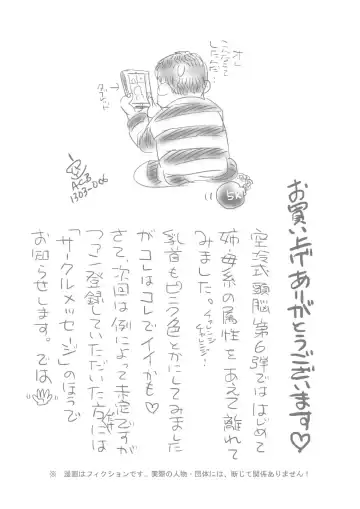 オレ
こんなこと
してたんだ…
タブレット
空
ACB
1303-006
5人
お買い上げありがとうございます♡
空冷式頭脳第6弾でははじめて
姉・母系の属性をあえて離れて
みました。
乳首もピンク色とかにしてみました
がコレはコレでイイかも♡
さて、次回は例によって未定ですが
ファン登録していただいた方には
「サークルメッセージ」のほうで
お知らせします。では
※ 漫画はフィクションです。実際の人物・団体には、断じて関係ありません!